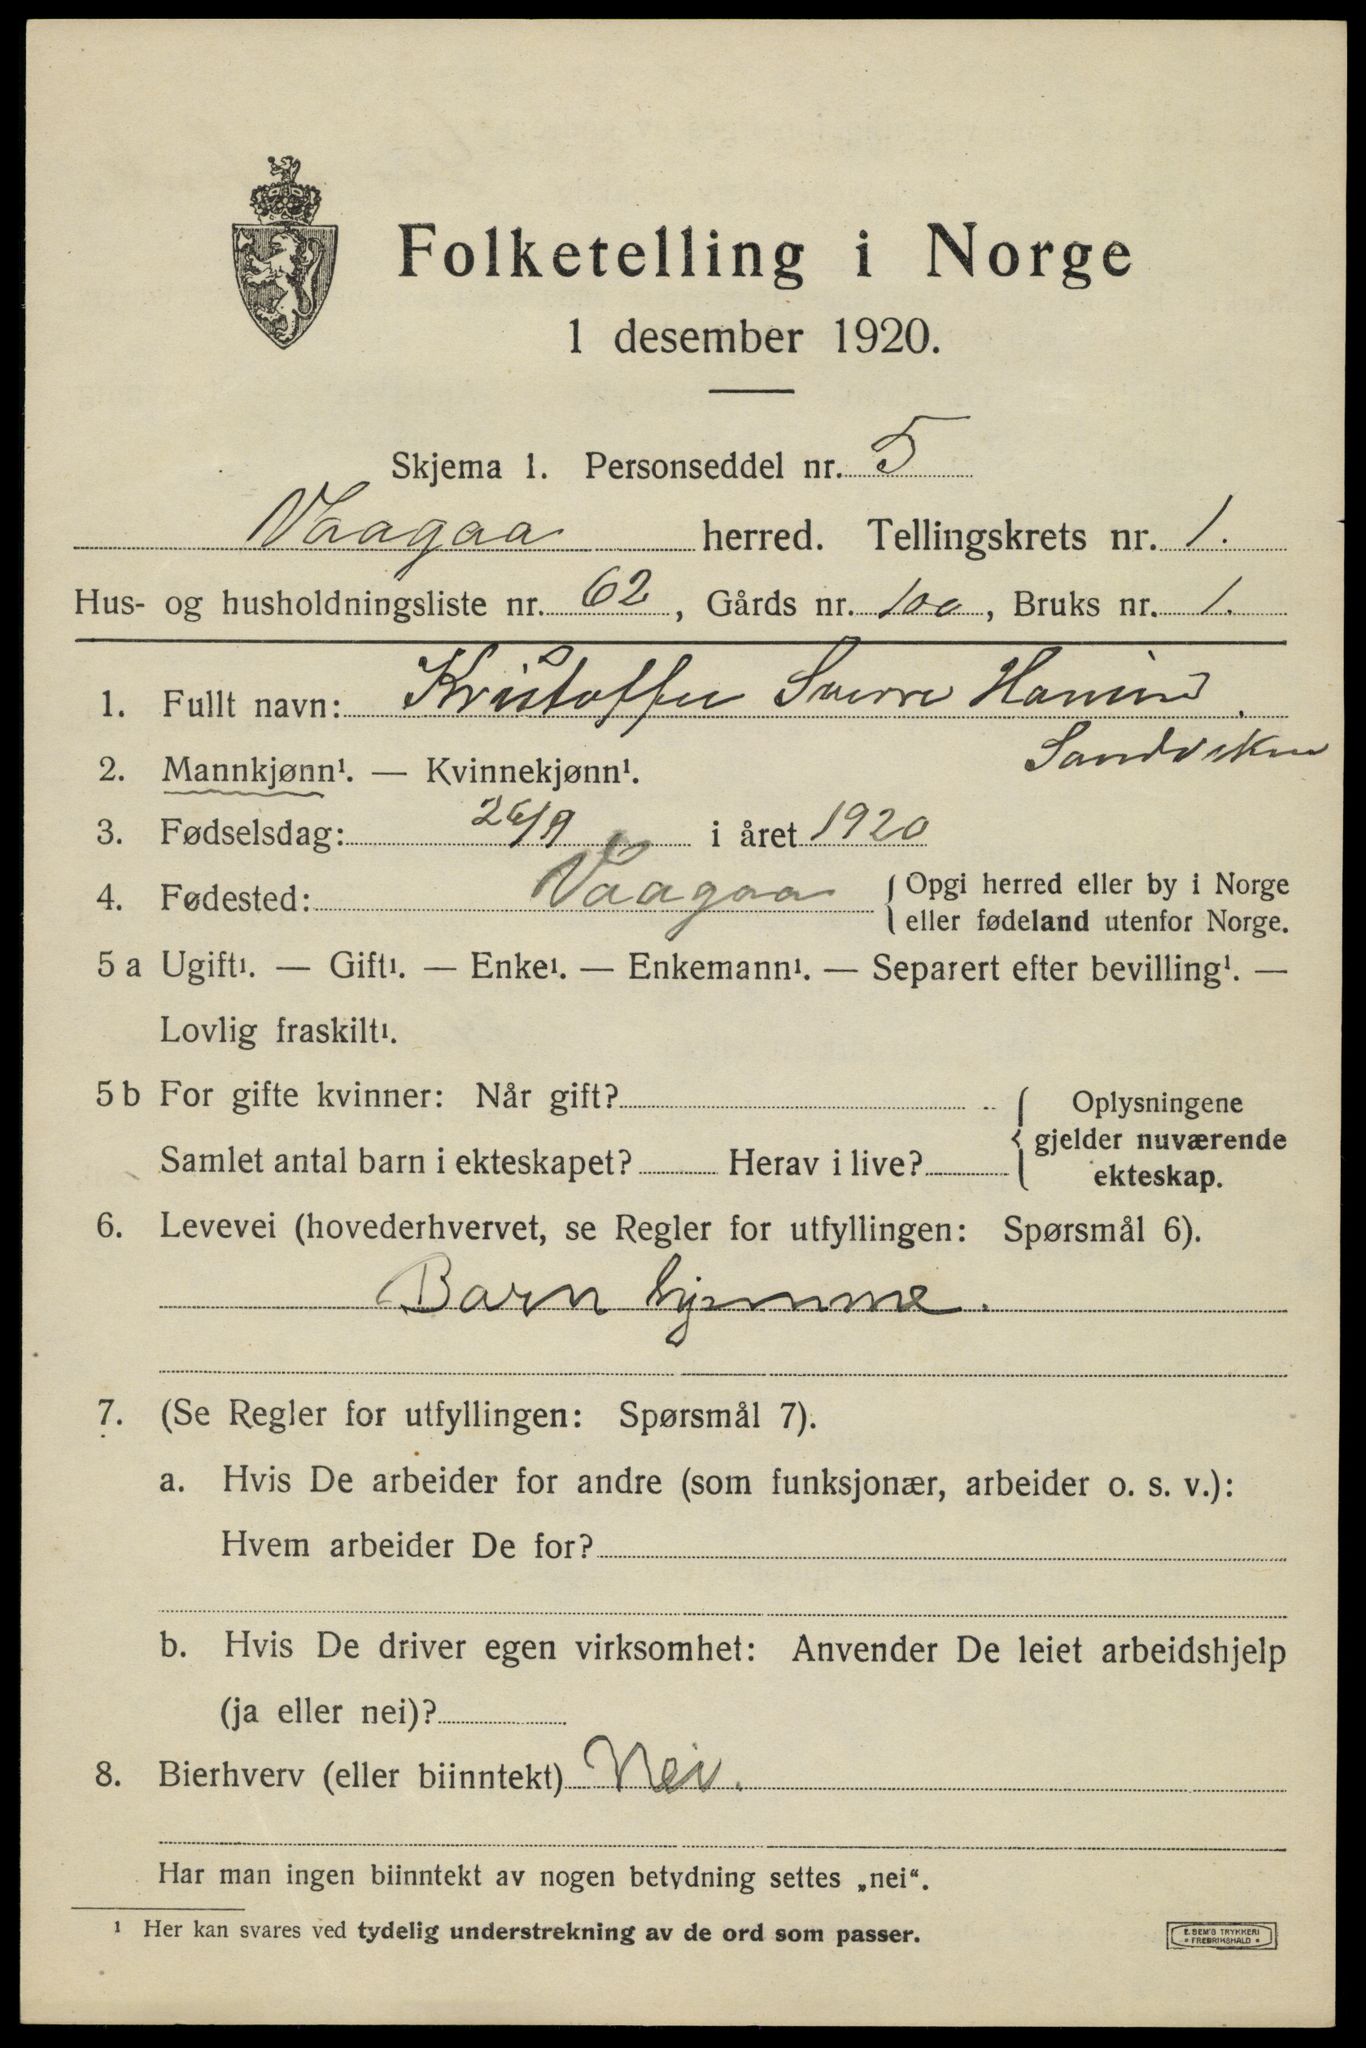 Folketelling i Norge
1 desember 1920.
Skjema 1. Personseddel nr. 5
Vaagaa herred. Tellingskrets nr. 1.
Hus- og husholdningsliste nr. 62, Gårds nr. 100, Bruks nr. 1.
1. Fullt navn: Kristoffer Sverre
Sandviken
2. Mannkjønn¹. — Kvinnekjønn¹.
3. Fødselsdag: 26/9 i året 1920
4. Fødested: Vaagaa { Opgi herred eller by i Norge
eller fødeland utenfor Norge.
5 a Ugift¹. — Gift¹. — Enke¹. — Enkemann¹. — Separert efter bevilling¹. —
Lovlig fraskilt¹.
5 b For gifte kvinner: Når gift?
Samlet antal barn i ekteskapet? Herav i live?
Oplysningene
gjelder nuværende
ekteskap.
6. Levevei (hovederhvervet, se Regler for utfyllingen: Spørsmål 6).
Barn hjemme.
7. (Se Regler for utfyllingen: Spørsmål 7).
a. Hvis De arbeider for andre (som funksjonær, arbeider o. s. v.):
Hvem arbeider De for?
b. Hvis De driver egen virksomhet: Anvender De leiet arbeidshjelp
(ja eller nei)?
8. Bierhverv (eller biinntekt) Nei.
Har man ingen biinntekt av nogen betydning settes „nei“.
¹ Her kan svares ved tydelig understrekning av de ord som passer.
E. SEM'S TRYKKERI
* FREDRIKSHALD *